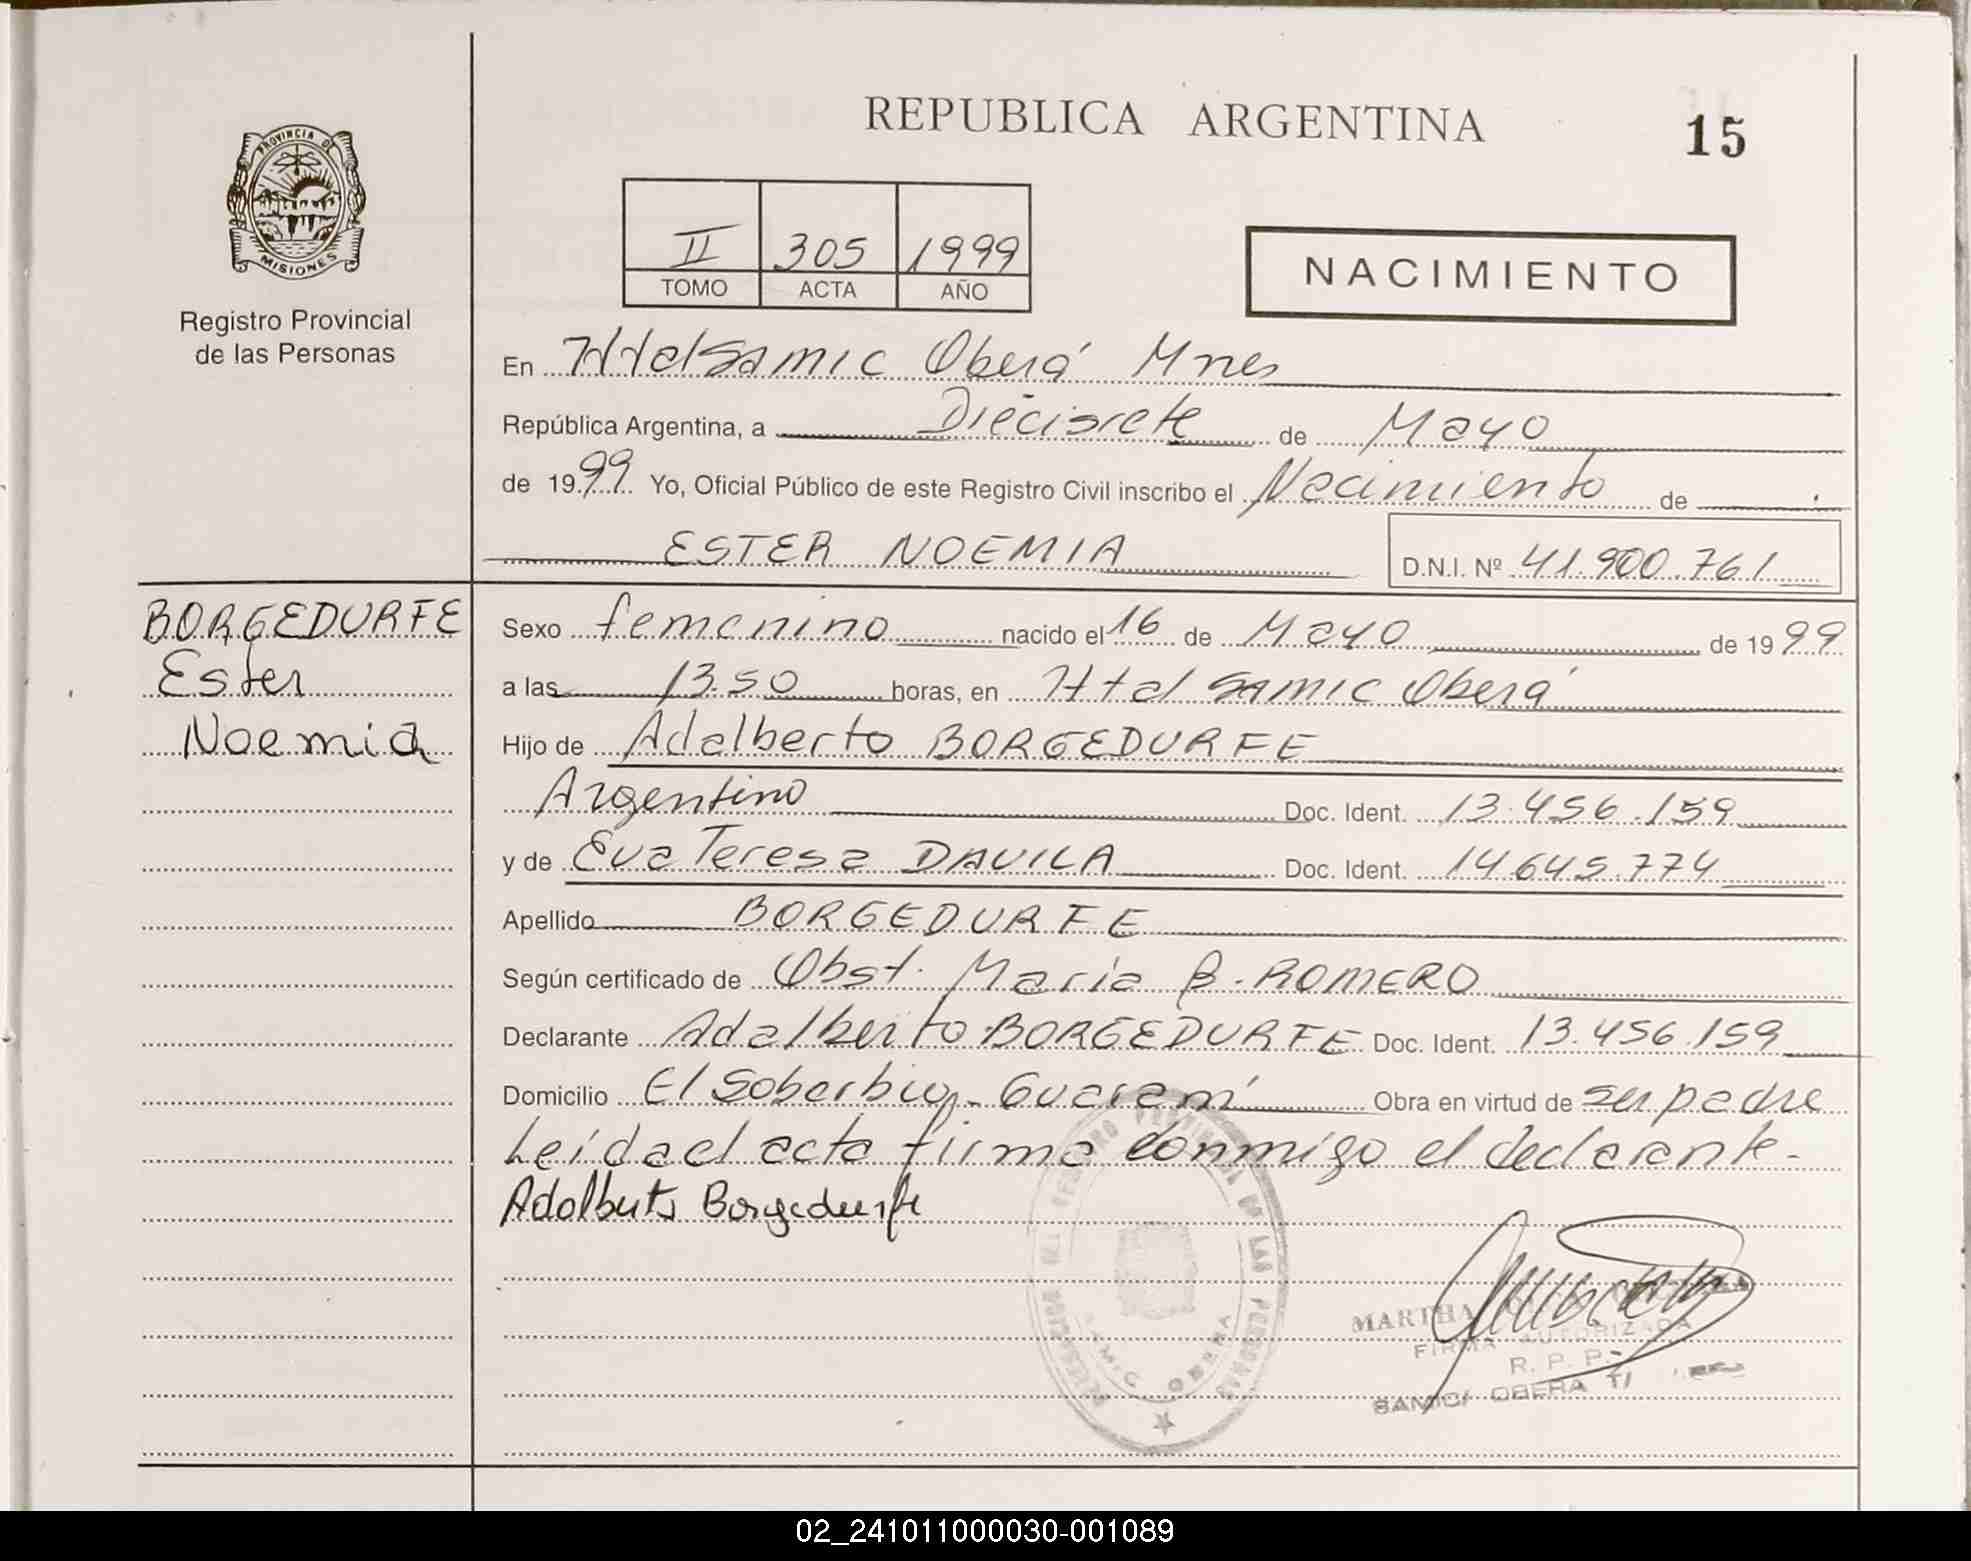 REPUBLICA ARGENTINA
15
PROVINCIA DE
MISIONES
Registro Provincial
de las Personas
II 305 1999
TOMO ACTA AÑO
NACIMIENTO
En Htal Samic Oberá Mnes
República Argentina, a Diecisiete de Mayo
de 1999 Yo, Oficial Público de este Registro Civil inscribo el Nacimiento de
ESTER NOEMIA D.N.I. Nº 41.900.761
BORGEDURFE
Ester
Noemia
Sexo femenino nacido el 16 de Mayo de 1999
a las 13.50 horas, en Htal Samic Oberá
Hijo de Adalberto BORGEDURFE
Argentino Doc. Ident. 13.456.159
y de Eva Teresa DAVILA Doc. Ident. 14.645.774
Apellido BORGEDURFE
Según certificado de Obst. María B. ROMERO
Declarante Adalberto BORGEDURFE Doc. Ident. 13.456.159
Domicilio El Soberbio - Guaraní Obra en virtud de ser padre
Leída el acta firma conmigo el declarante -
Adalberto Borgedurfe
REGISTRO PROVINCIAL DE LAS PERSONAS
SAMIC OBERA
MARTHA
FIRMA AUTORIZADA
R. P. P.
SAMIC OBERA
02_241011000030-001089